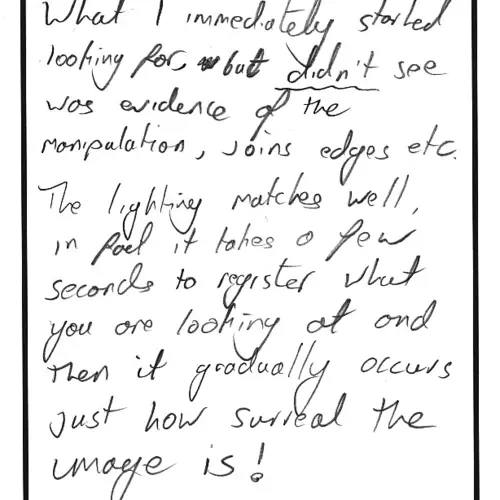 What I immediately started
looking for, but didn't see
was evidence of the
manipulation, joins edges etc.
The lighting matches well,
in fact it takes a few
seconds to register what
you are looking at and
then it gradually occurs
just how surreal the
image is!